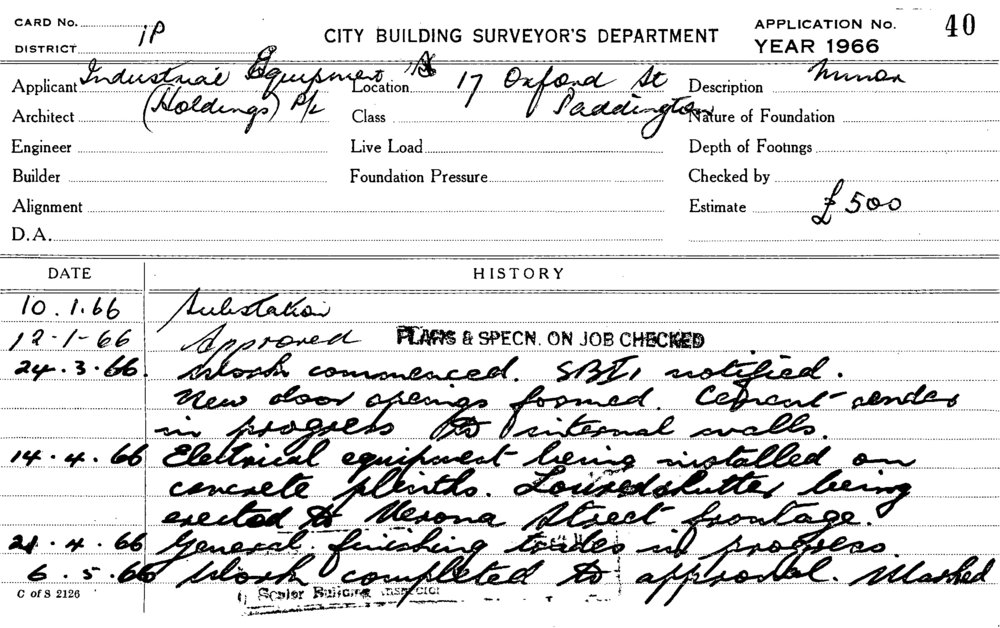 CARD No. iP
DISTRICT
CITY BUILDING SURVEYOR'S DEPARTMENT
APPLICATION No. 40
YEAR 1966
Applicant Industrial Equipment
(Holdings) P/L
Location 17 Oxford St
Paddington
Description Minor
Architect
Class
Nature of Foundation
Engineer
Live Load
Depth of Footings
Builder
Foundation Pressure
Checked by
Alignment
Estimate £500
D.A.
DATE HISTORY
10.1.66 Substation
12-1-66 Approved PLANS & SPECN. ON JOB CHECKED
24.3.66. Work commenced. SBI, notified.
New door openings formed. Cement render
in progress to internal walls.
14.4.66 Electrical equipment being installed on
concrete plinths. Louvred shutter being
erected to Verona Street frontage.
21.4.66 General finishing trades in progress
6.5.66 Work completed to approval. Marked
C of S 2126
Senior Building Inspector